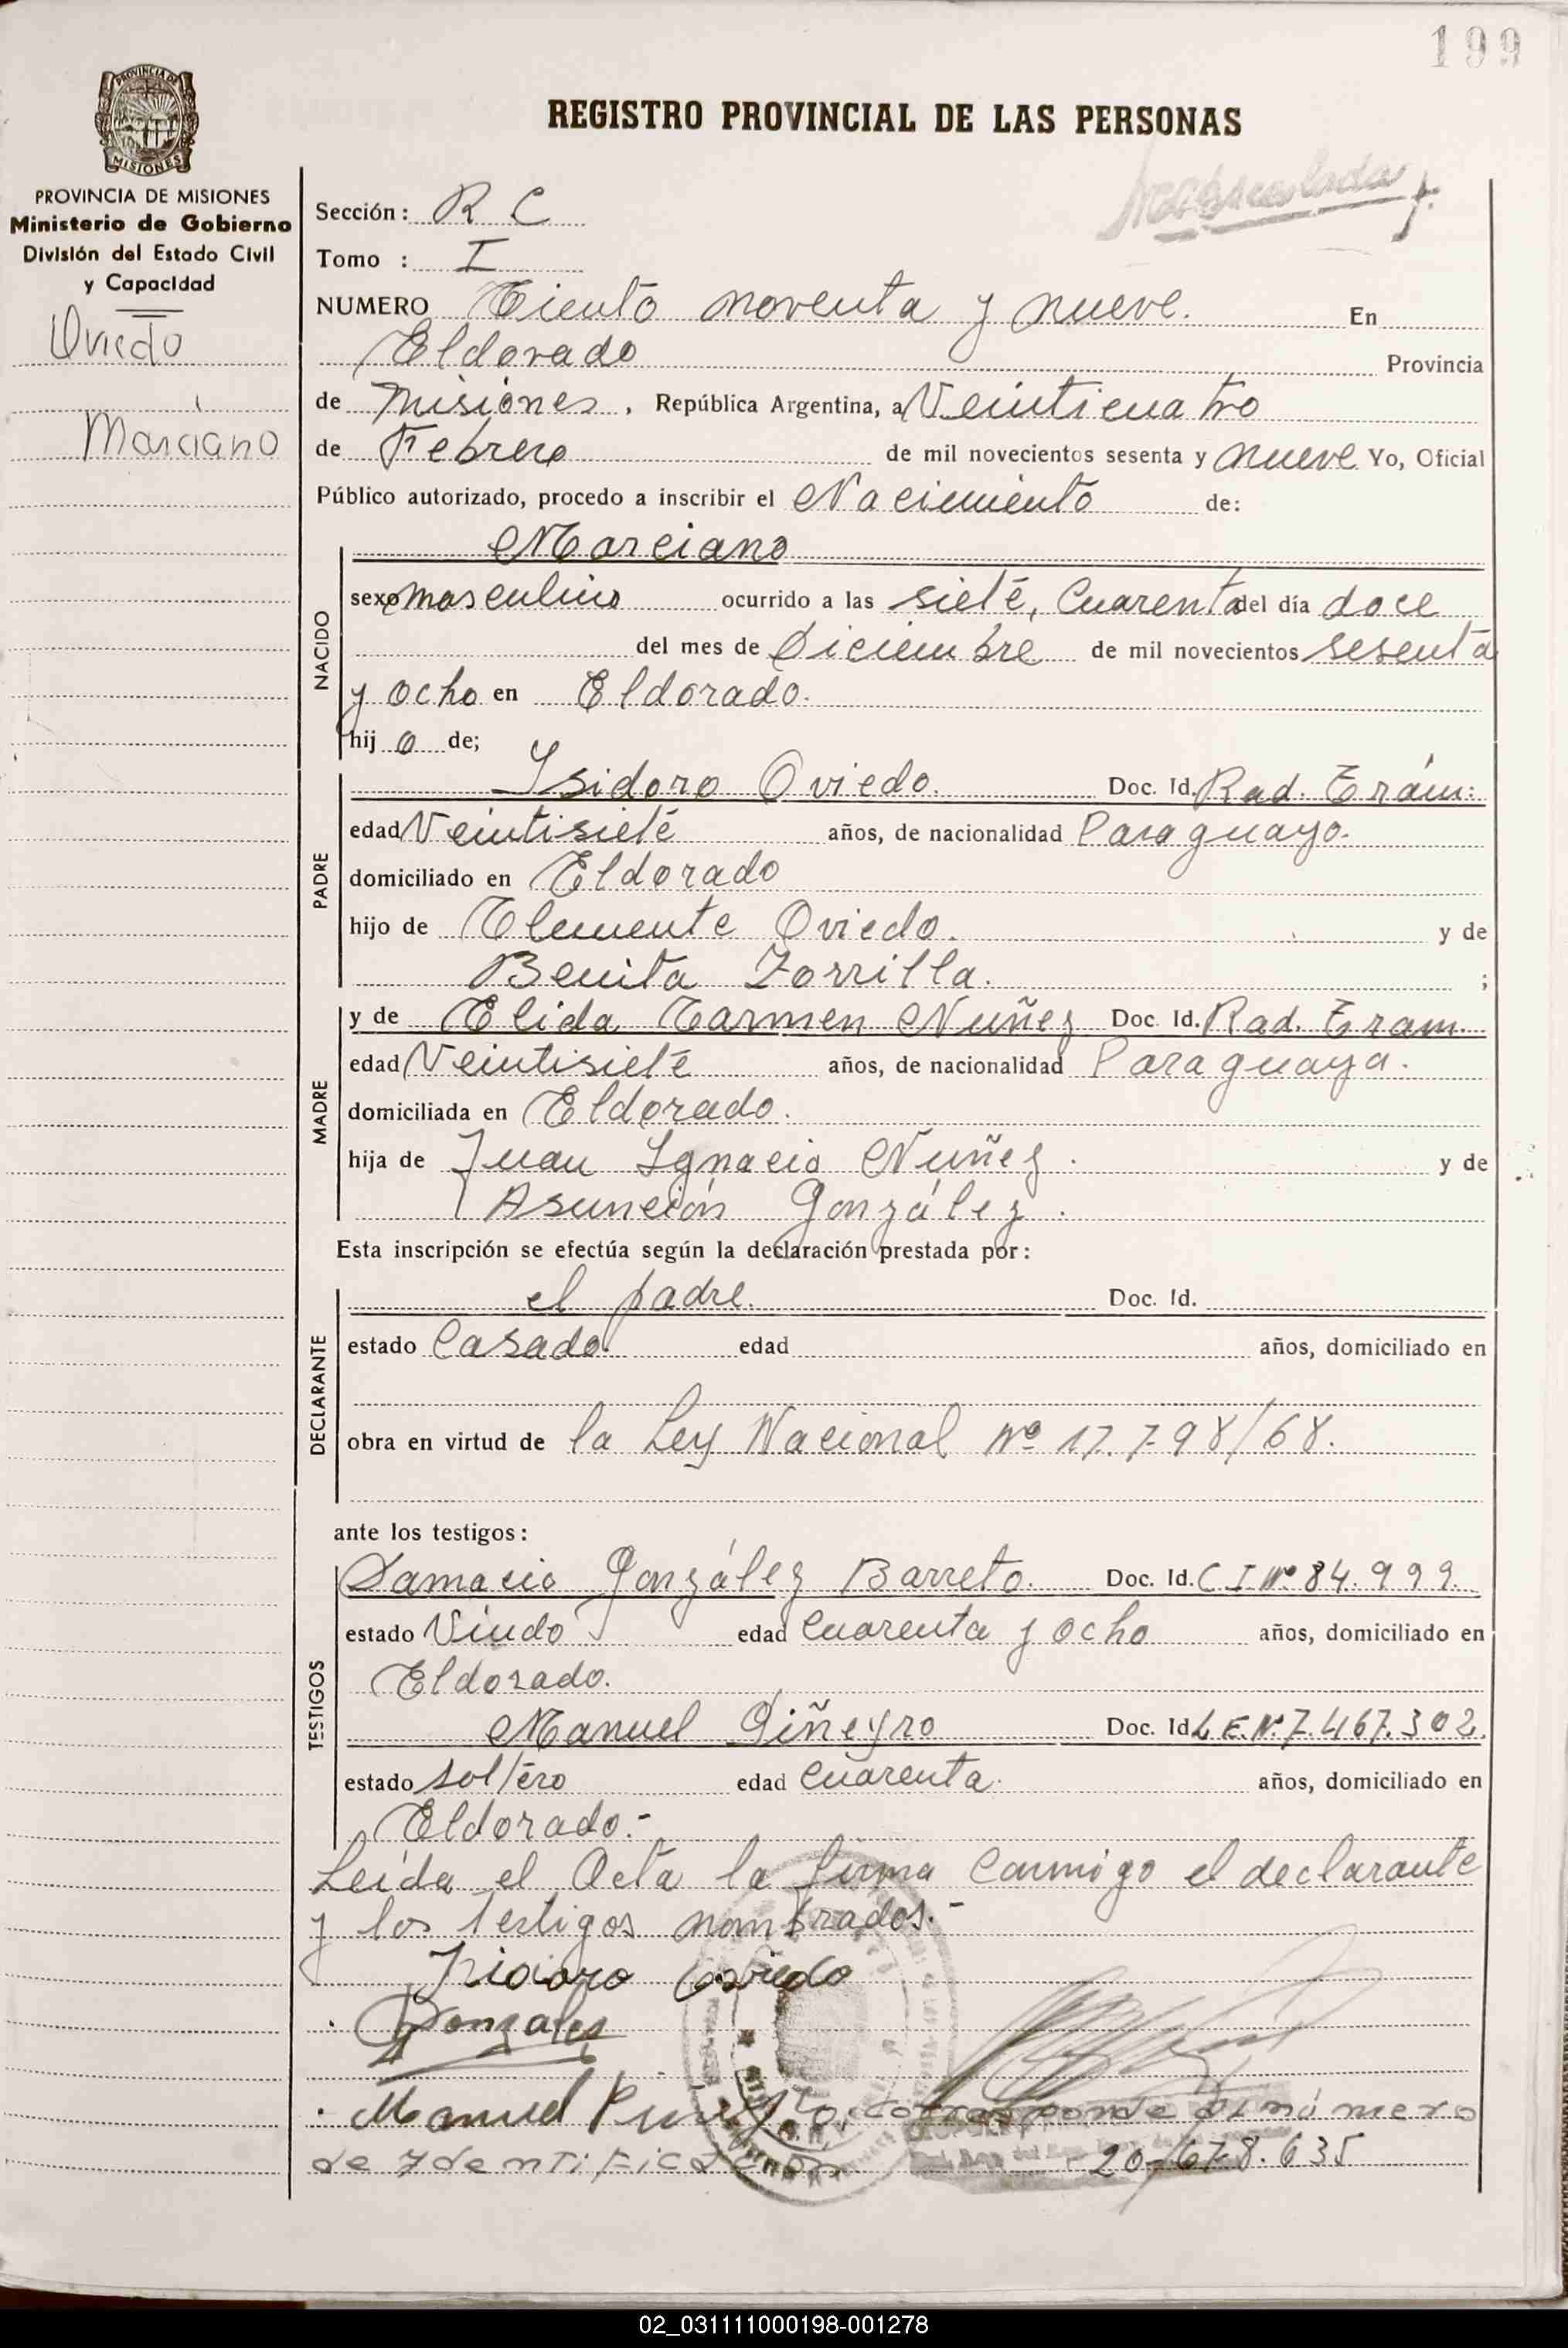 199
REGISTRO PROVINCIAL DE LAS PERSONAS
PROVINCIA DE
MISIONES
PROVINCIA DE MISIONES
Ministerio de Gobierno
División del Estado Civil
y Capacidad
Oviedo
Marciano
Sección: R C
Tomo : I
NUMERO Ciento noventa y nueve. En
Eldorado Provincia
de Misiones, República Argentina, a Veinticuatro
de Febrero de mil novecientos sesenta y nueve Yo, Oficial
Público autorizado, procedo a inscribir el Nacimiento de:
NACIDO
Marciano
sexo masculino ocurrido a las siete, Cuarenta del día doce
del mes de Diciembre de mil novecientos sesenta
y ocho en Eldorado.
hij o de;
PADRE
Isidoro Oviedo. Doc. Id. Rad. Trám:
edad Veintisiete años, de nacionalidad Paraguayo.
domiciliado en Eldorado
hijo de Clemente Oviedo. y de
Benita Zorrilla. ;
MADRE
y de Elida Carmen Nuñez Doc. Id. Rad. Tram.
edad Veintisiete años, de nacionalidad Paraguaya.
domiciliada en Eldorado.
hija de Juan Ignacio Nuñez. y de
Asunción González.
Esta inscripción se efectúa según la declaración prestada por:
DECLARANTE
el padre. Doc. Id.
estado Casado. edad años, domiciliado en
obra en virtud de la Ley Nacional Nº 17.798/68.
ante los testigos:
TESTIGOS
Damacio González Barreto. Doc. Id. C I Nº 84.999.
estado Viudo edad Cuarenta y ocho años, domiciliado en
Eldorado.
Manuel Piñeyro Doc. Id. L.E.Nº 7.467.302.
estado soltero edad Cuarenta. años, domiciliado en
Eldorado.-
Leída el Acta la firma Conmigo el declarante
y los testigos nombrados.-
Isidoro Oviedo
Gonzales
Manuel Piñeyro, corresponde al número
de Identificación 20.678.635
02_031111000198-001278